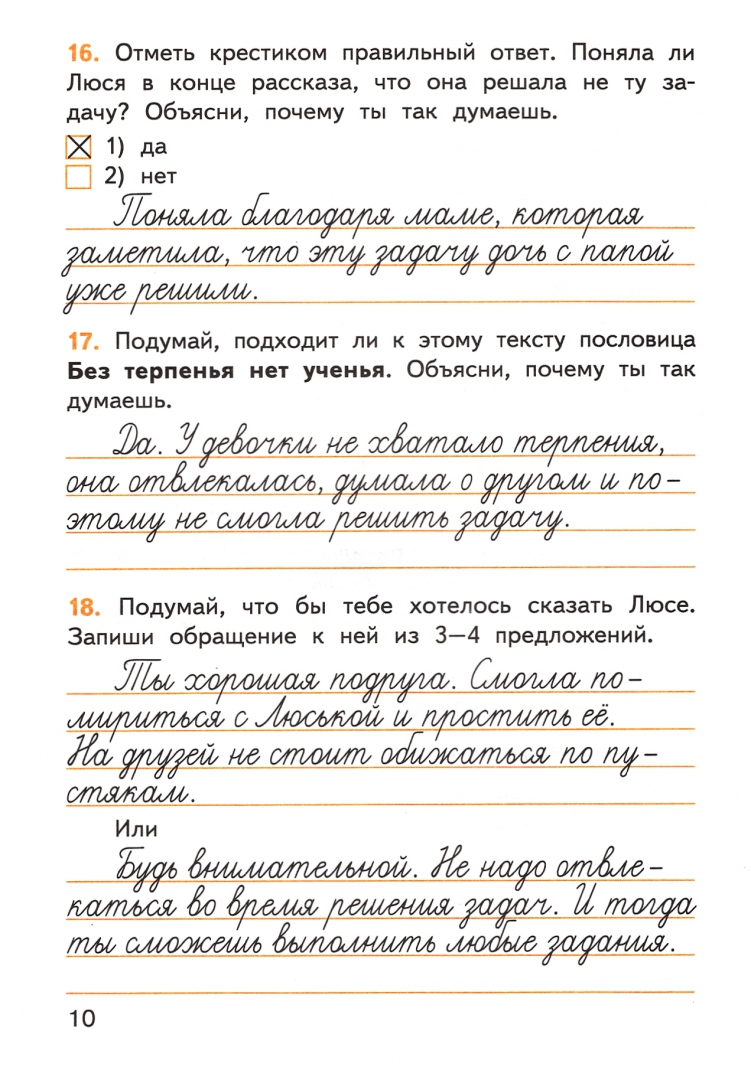 16. Отметь крестиком правильный ответ. Поняла ли
Люся в конце рассказа, что она решала не ту за-
дачу? Объясни, почему ты так думаешь.
1) да
2) нет
Поняла благодаря маме, которая
заметила, что эту задачу дочь с папой
уже решили.
17. Подумай, подходит ли к этому тексту пословица
Без терпенья нет ученья. Объясни, почему ты так
думаешь.
Да. У девочки не хватало терпения,
она отвлекалась, думала о другом и по-
этому не смогла решить задачу.
18. Подумай, что бы тебе хотелось сказать Люсе.
Запиши обращение к ней из 3—4 предложений.
Ты хорошая подруга. Смогла по-
мириться с Люськой и простить её.
На друзей не стоит обижаться по пу-
стякам.
Или
Будь внимательной. Не надо отвле-
каться во время решения задач. И тогда
ты сможешь выполнить любые задания.
10